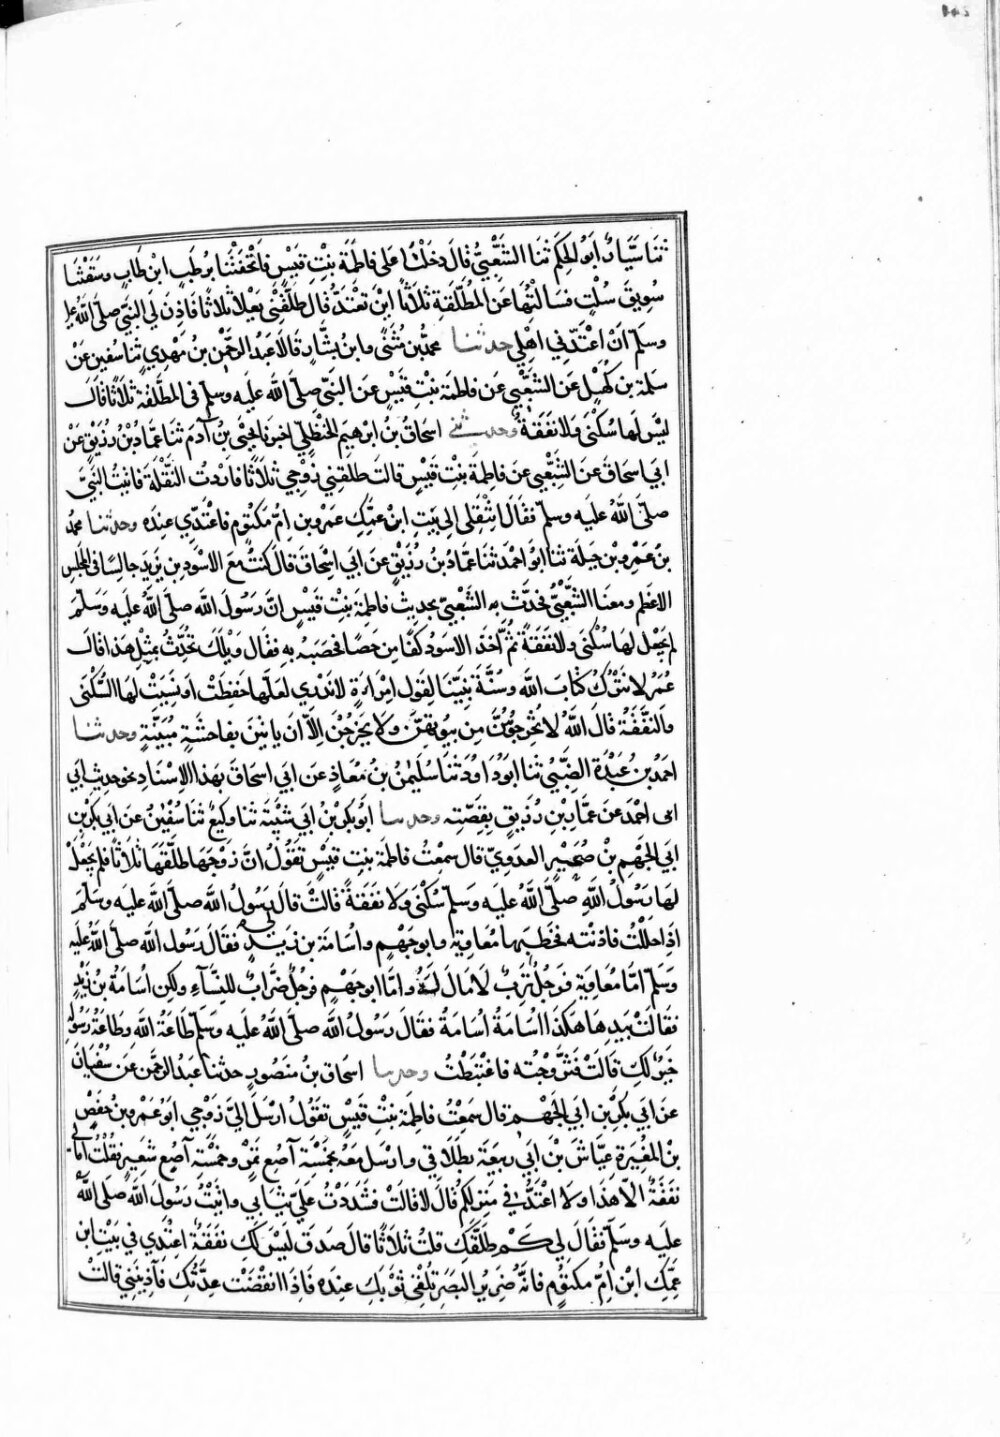 ثَنَا سَيَّارٌ اَبُو الحِكَم ثنا الشَّعْبِيُّ قال دخَلْنَا على فاطمَةَ بنْتِ قيَسْ فاَتحَفَتْنَا برُطَبِ ابْن طَابٍ وسَقَتْنَا
سُوِيقَ سُلْتٍ فسَالتُهَا عَن المُطَلَّقَةِ ثلاَثاً ايْنَ تعْتَدُّ قال طَلَّقَنِى بَعْلِى ثلاثاً فَاذِنَ لِي النبِّى صلّى اللهُ علَ
وسَلم اَنْ اعْتَدَّ فى اهْلِي حدثنا محمدُ بن مُثَنَّى وابنُ بشَّارٍ قَالاَ عَبدُ الرحمٰن بنُ مَهْدِيٍ ثنا سُفين عَنْ
سَلمة بن كُهَيْلٍ عَن الشعْبِّى عَن فاطمَة بنْتِ قَيْسٍ عَن النبَّى صلّى اللهُ علَيه وسَلم فى المطَلَّقة ثلاَثاً قَالَ
ليْسَ لهَا سُكْنَى وَلانفَقَةٌ وحَدثنى اسحَاقُ بنُ ابرهِيَم الحَنْظَلِي اخبرَنا يحْيَى بنُ آدَمَ ثنا عمَّارُ بْنُ رُزَيْقٍ عَنْ
ابِي اسحَاقَ عَن الشّعْبِي عَن فاطِمَة بنْتِ قَيْسٍ قالتَ طلقنِي زوْجِي ثلاَثاً فارَدْتُ النُّقْلَةَ فَاتيتُ النبَيَّ
صلّى اللهُ عليَه وسَلم فقَالَ انتْقلى الى بَيتِ ابْن عمّكِ عَمْرو بن اُمّ مَكتُوم فاعْتَدّي عندَه وحدثنا محمدُ
بنُ عَمْرِو بْن جَبَلَة ثنا ابوُ احْمَدَ ثنا عمَّارُ بنُ رُزَيْقٍ عَن ابي اسْحَاقَ قالَ كنتُ معَ الاسْوَدِ بن يَزيدَ جالِسًا فى المَجْلِسِ
الاعْظم ومعنا الشَّعْبِيُّ فحَدَّثَ به الشّعْبِيّ بحَديث فاطمَةَ بنْتِ قَيسٍ انَّ رَسُولَ الله صلّى اللهُ علَيه وَسَلم
لم يَجْعل لهَا سُكْنَى ولانفَقَةً ثُمّ اَخَذ الاسوَد كفًّا مِن حَصًا فحَصَبَهُ بِهِ فقَال وَيْلَكَ تحَدِّثُ بمِثْلِ هَذا قالَ
عُمَرُ لانتْرُكُ كتَابَ اللهِ وسُنّةَ نبيّنَا لِقَول اِمْرَاَةٍ لانَدْرِي لعَلّهَا حَفِظَتْ اَو نَسِيَتْ لهَا السُّكْنَى
وَالنفَقَةُ قالَ اللهُ لا تُخرِجُوهُنَّ مِن بيُوتهنَّ وَلا يَخرُجْنَ اِلاّ اَنْ ياتِينَ بفَاحشَةٍ مُبَيِّنةٍ وحدثنا
احمَدُ بنُ عَبْدَة الضَّبِيّ ثنا ابوُ دَاوُدَ ثنَا سُلَيمٰنُ بنُ مُعَاذٍ عَن ابِي اسحَاقَ بهَذا الاِسْنَادِ نحوحَديثِ ابي
ابى احْمَدَ عَن عمَّارِ بْنِ رُزَيقٍ بقِصَّتِه وحدثنا ابُو بَكرِ بْنُ ابي شَيْبَةَ ثنا وَكيعٌ ثنا سُفْيٰنُ عَن ابي بَكْرِ بْن
ابي الجَهْمِ بْنِ صُخَيْرٍ العدَوِيّ قال سمِعْتُ فاطمَةَ بنتِ قيْسٍ تقُولُ انَّ زوْجَهَا طلَّقَهَا ثلاَثاً فلم يَجْعَلْ
لهَا رسُولُ اللهِ صلّى اللهُ علَيه وسَلم سُكْنَى وَلا نَفَقَةً قالَتْ قالَ لي رَسُولُ اللهِ صلّى اللهُ عليَه وسَلم
اذا حلَلْتِ فاذنينى فاذنْته فخَطبَها مُعَاويَةُ وابُو جَهْمٍ واُسَامَة بن زَيْدٍ فقَالَ رَسُول الله صلّى اللهُ علَيه
وَسَلم امّا مُعَاوِيَة فَرجُلٌ تَرِبٌ لاَ مَالَ لَهُ وامّا ابُو جَهْمٍ فرَجُلٌ ضَرَّابٌ للنِّسَآءِ ولكِن اُسَامَةُ بنُ زَيْدٍ
فقالتْ بيَدِهَا هَكذَا اُسَامَةُ اُسَامَةُ فقَالَ رَسُولُ الله صلّى اللهُ علَيه وسَلم طَاعَةُ اللهِ وطَاعَةُ رَسُولِه
خَيْرٌ لكِ قالَتْ فتَزَوَّجْتُه فاغْتَبَطْتُ وحدثنا اسحَاق بنُ مَنصُورٍ حدثنا عَبدُ الرحمَن عَن سُفْيَانَ
عَن ابِي بَكْرِ بن ابي الجَهْمِ قال سَمعْتُ فاطِمَةَ بنْتَ قَيْسٍ تقوُلُ ارْسَلَ اِليَّ زَوْجي ابُو عَمْرو بنُ حَفْصٍ
بْنِ المُغِيَرةِ عيَّاشَ بْنَ اَبي ربيعَةَ بطَلاَقِي وارسَل معَهُ بخَمْسَة آصُعِ تمْرٍ وخَمْسَةِ آصُعِ شَعِيرٍ فقُلتُ اَمالي
نفَقَةٌ الاّ هَذَا وَلا اعْتَدُّ في مَنزلكِم قالَ لا قالَتْ فشَدَدْتُ علَيّ ثيَابي واَتَيْتُ رَسُولَ الله صلى اللهُ
علَيه وسَلم فقالَ لي كَمْ طلّقَكِ قلتُ ثلاَثاً قالَ صَدقَ ليْسَ لكِ نفَقَةٌ اعتَدّي فى بيَتِ ابن
عمّكِ ابْن اُمّ مكتوُم فانَّهُ ضَرِيرُ البَصَر تُلْقِى ثوْبَكِ عِندَه فَاذَا انْقَضَتْ عِدّتُكِ فَآذِنينِي قالتْ